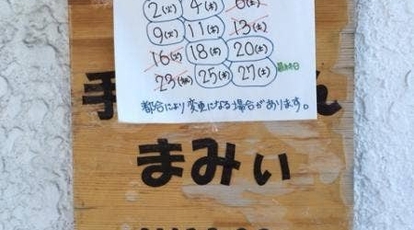 2(火) 4(木) 6(土)
9(火) 11(木) 13(土)
16(火) 18(木) 20(土)
23(祝) 25(木) 27(土) 最終日
都合により変更になる場合があります。
手 ん
まみぃ